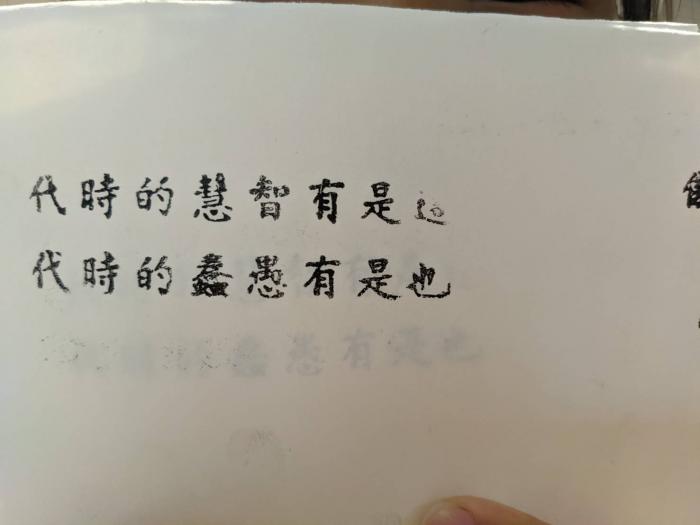 這是有智慧的時代
也是有愚蠢的時代